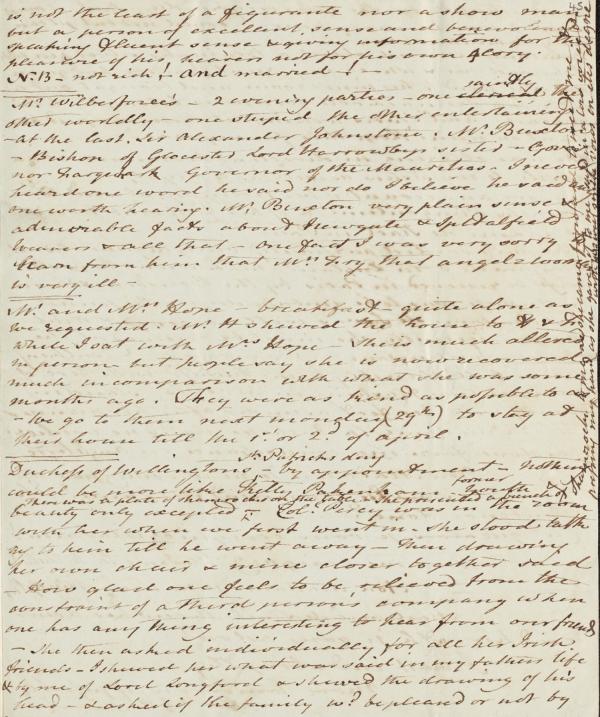 is not the least of a figurante nor a show man
but a person of excellent sense and benevolence
speaking fluent sense & giving information for the
pleasure of his hearers not for his own glory.
N.B - not rich! and married! -
Mr. Wilberforce's - 2 evening parties - one clerical saintly the
other worldly - one stupid the other entertaining
- at the last, Sir Alexander Johnstone. Mr. Buxton
- Bishop of Glocester Lord Harrowbys sister - Gover
nor Farquhar Governor of the Mauritius. I never
heard one word he said nor do I believe he said
one worth hearing. Mr. Buxton very plain sense &
admirable facts about Newgate & Spitalfield
weavers & all that - one fact I was very sorry
learn from him that Mrs. Fry that angel woman
is very ill -
Mr. and Mrs. Hope - breakfast - quite alone as
we requested. Mr. H shewed the house to H & F
while I sat with Mrs. Hope - She is much altered
in person but people say she is now recovered
much in comparison with what she was some
months ago. They were as kind as possible to us
- We go to them next monday (29th) to stay at
their house till the 1st or 2d of april.
St. Patricks day
Duchess of Wellingtons - by appointment - Nothing
could be more like Kitty Pakenham - former youth &
There was a plate of shamrocks on the table & she presented a bunch of
beauty only excepted - Col. Percy was in the room
with her when we first went in. She stood talk
ing to him till he went away - Then drawing
her own chair & mine closer together said
- How glad one feels to be relieved from the
constraint of a third person's company when
one has any thing interesting to hear from our friends
- She then asked individually for all her Irish
friends - I shewed her what was said in my fathers life
& by me of Lord Longford & shewed the drawing of his
head - & asked if the family wd. be pleased or not by